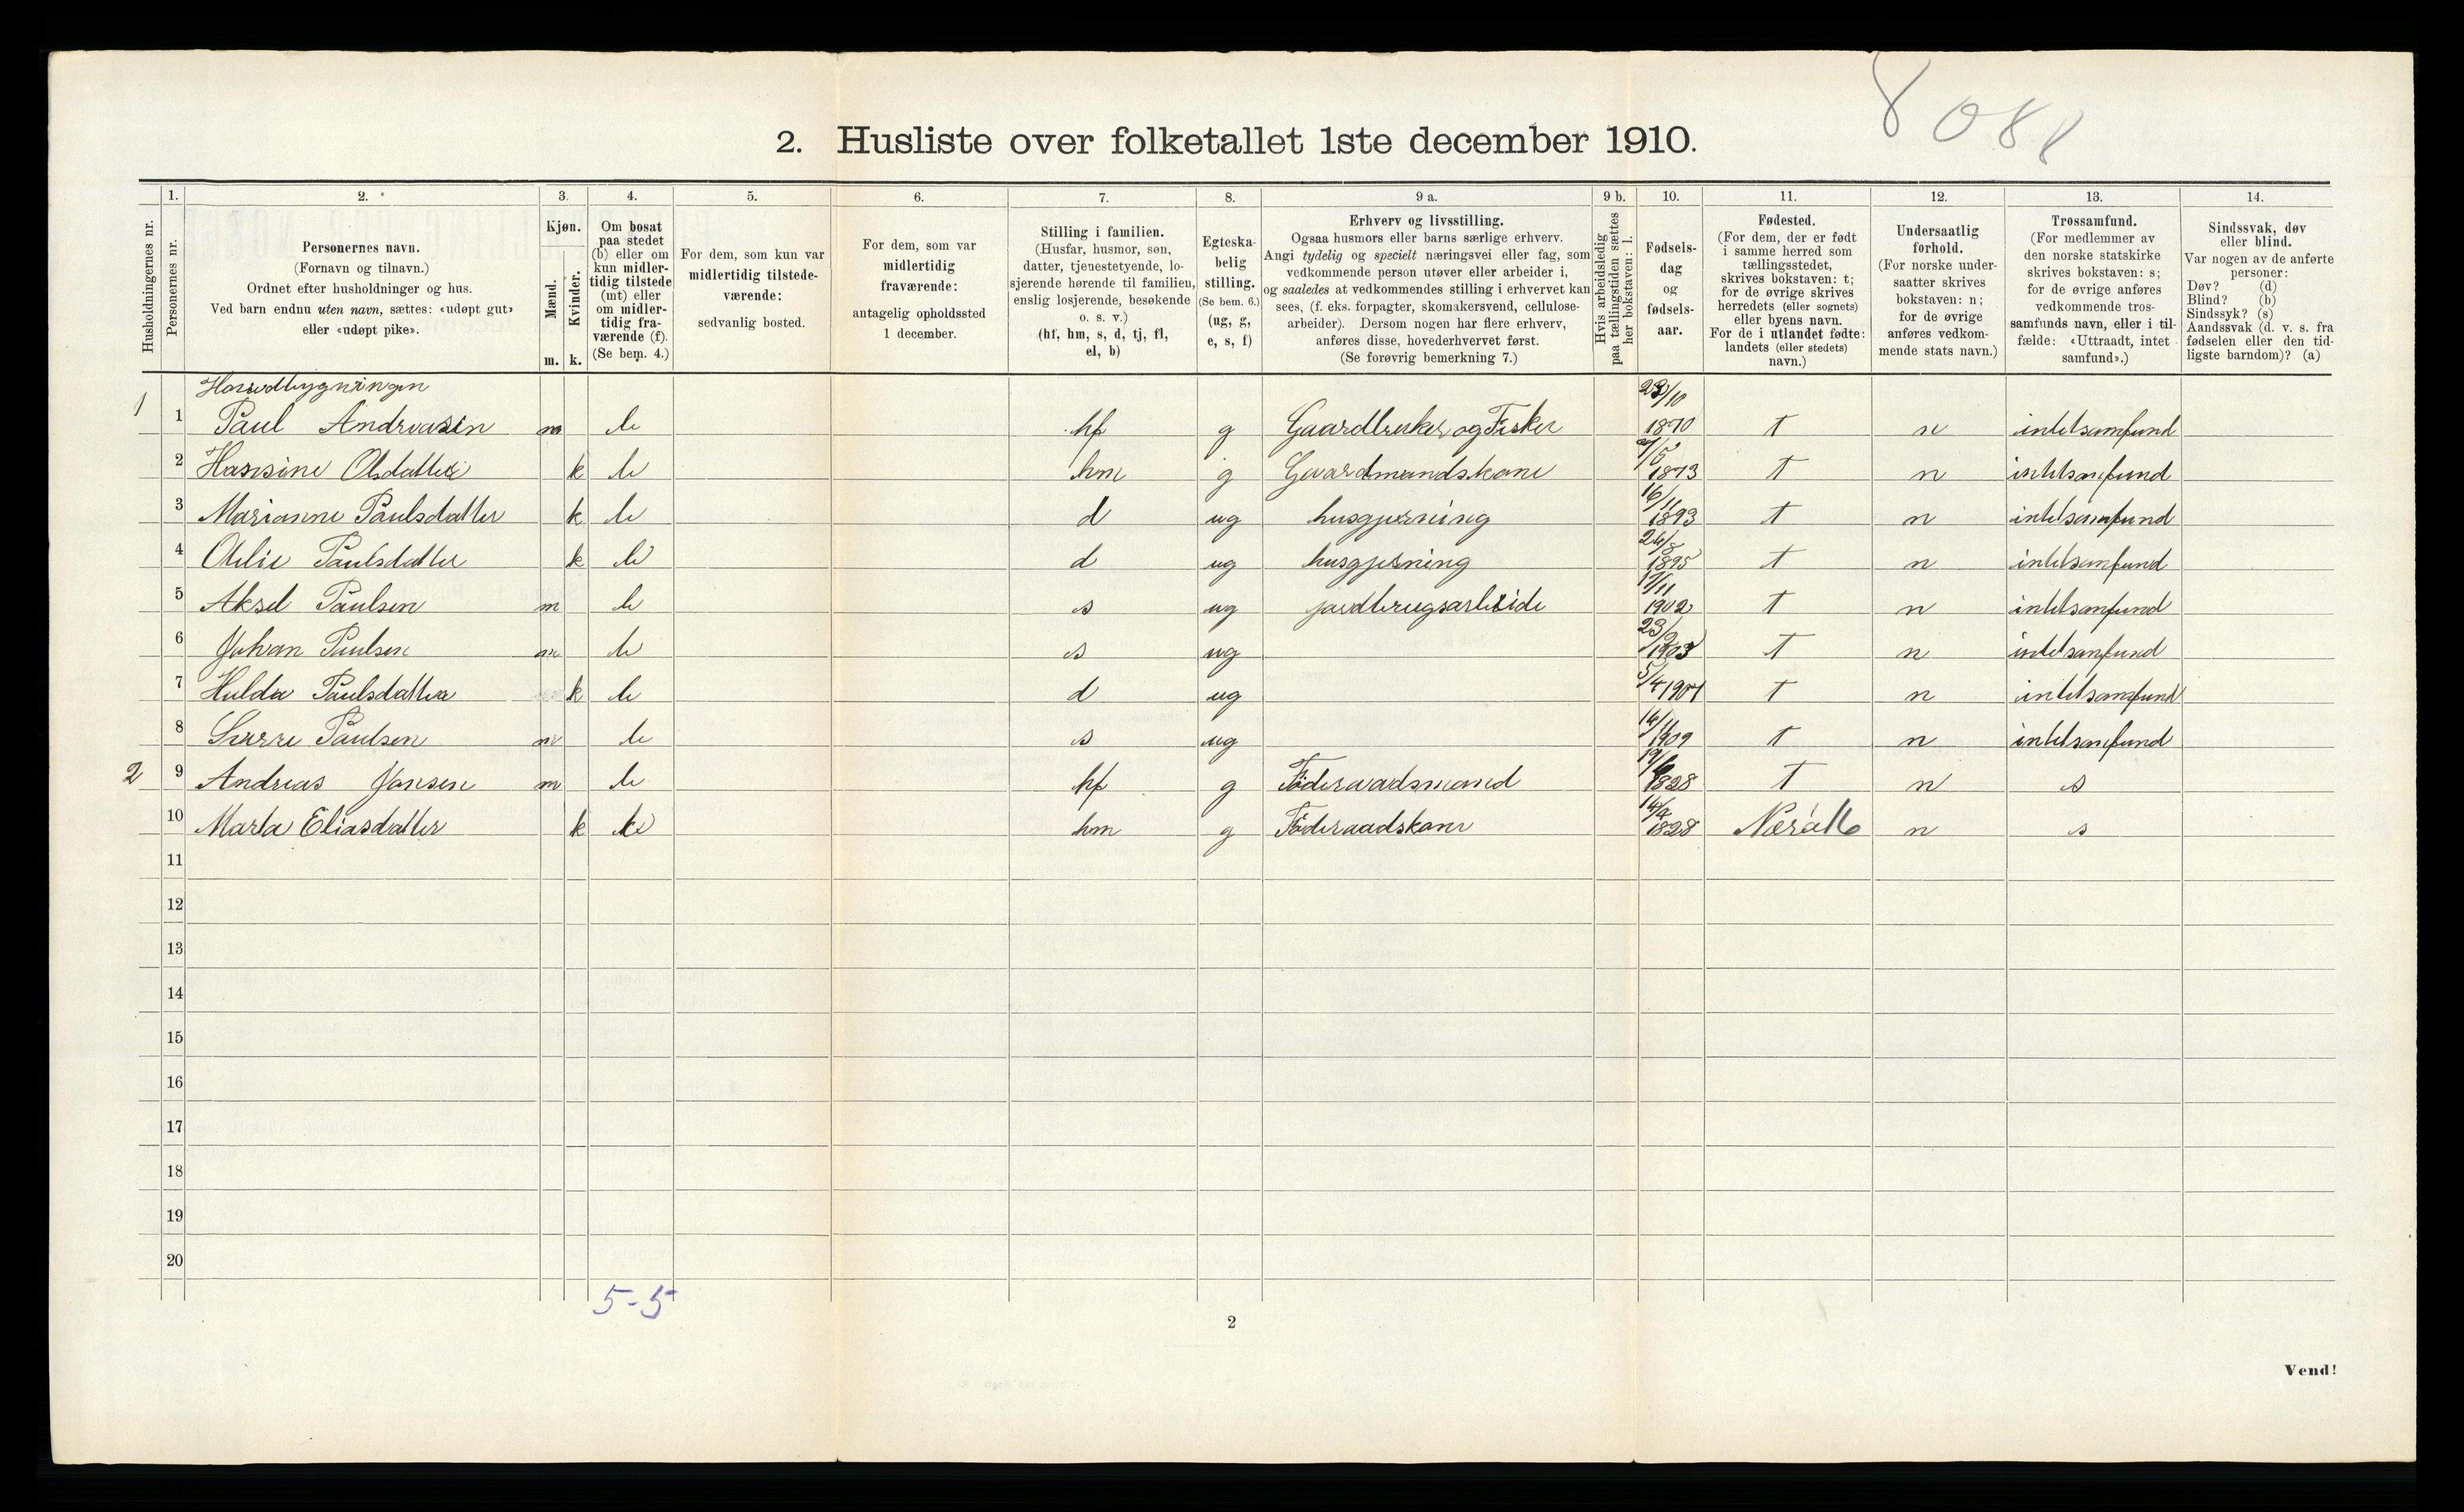 8088
2. Husliste over folketallet 1ste december 1910.
Husholdningernes nr.
1. Personernes nr.
2. Personernes navn.
(Fornavn og tilnavn.)
Ordnet efter husholdninger og hus.
Ved barn endnu uten navn, sættes: «udøpt gut»
eller «udøpt pike».
3. Kjøn.
Mænd. m.
Kvinder. k.
4. Om bosat
paa stedet
(b) eller om
kun midler-
tidig tilstede
(mt) eller
om midler-
tidig fra-
værende (f).
(Se bem. 4.)
5. For dem, som kun var
midlertidig tilstede-
værende:
sedvanlig bosted.
6. For dem, som var
midlertidig
fraværende:
antagelig opholdssted
1 december.
7. Stilling i familien.
(Husfar, husmor, søn,
datter, tjenestetyende, lo-
sjerende hørende til familien,
enslig losjerende, besøkende
o. s. v.)
(hf, hm, s, d, tj, fl,
el, b)
8. Egteska-
belig
stilling.
(Se bem. 6.)
(ug, g,
e, s, f)
9 a. Erhverv og livsstilling.
Ogsaa husmors eller barns særlige erhverv.
Angi tydelig og specielt næringsvei eller fag, som
vedkommende person utøver eller arbeider i,
og saaledes at vedkommendes stilling i erhvervet kan
sees, (f. eks. forpagter, skomakersvend, cellulose-
arbeider). Dersom nogen har flere erhverv,
anføres disse, hovederhvervet først.
(Se forøvrig bemerkning 7.)
9 b. Hvis arbeidsledig
paa tællingstiden sættes
her bokstaven: l.
10. Fødsels-
dag
og
fødsels-
aar.
11. Fødested.
(For dem, der er født
i samme herred som
tællingsstedet,
skrives bokstaven: t;
for de øvrige skrives
herredets (eller sognets)
eller byens navn.
For de i utlandet fødte:
landets (eller stedets)
navn.)
12. Undersaatlig
forhold.
(For norske under-
saatter skrives
bokstaven: n;
for de øvrige
anføres vedkom-
mende stats navn.)
13. Trossamfund.
(For medlemmer av
den norske statskirke
skrives bokstaven: s;
for de øvrige anføres
vedkommende tros-
samfunds navn, eller i til-
fælde: «Uttraadt, intet
samfund».)
14. Sindssvak, døv
eller blind.
Var nogen av de anførte
personer:
Døv? (d)
Blind? (b)
Sindssyk? (s)
Aandssvak (d. v. s. fra
fødselen eller den tid-
ligste barndom)? (a)
Hovedbygningen
1 1 Paul Andreasen m b hf g Gaardbruker og Fisker /10 1870 t n intetsamfund
2 Hansine Olsdatter k b hm g Gaardmandskone /5 1873 t n intetsamfund
3 Marianne Paulsdatter k b d ug husgjerning 16/11 1893 t n intetsamfund
4 Otelie Paulsdatter k b d ug husgjerning 24/8 1895 t n intetsamfund
5 Aksel Paulsen m b s ug jordbrugsarbeide 17/11 1902 t n intetsamfund
6 Johan Paulsen m b s ug 23/9 1903 t n intetsamfund
7 Hulda Paulsdatter k b d ug 5/4 1907 t n intetsamfund
8 Sverre Paulsen m b s ug 14/11 1909 t n intetsamfund
2 9 Andreas Jonsen m b hf g Föderaadsmand 19/6 1828 t n s
10 Marta Eliasdatter k b hm g Föderaadskone 14/4 1828 Nærö n s
11
12
13
14
15
16
17
18
19
20
5-5
2
Vend!